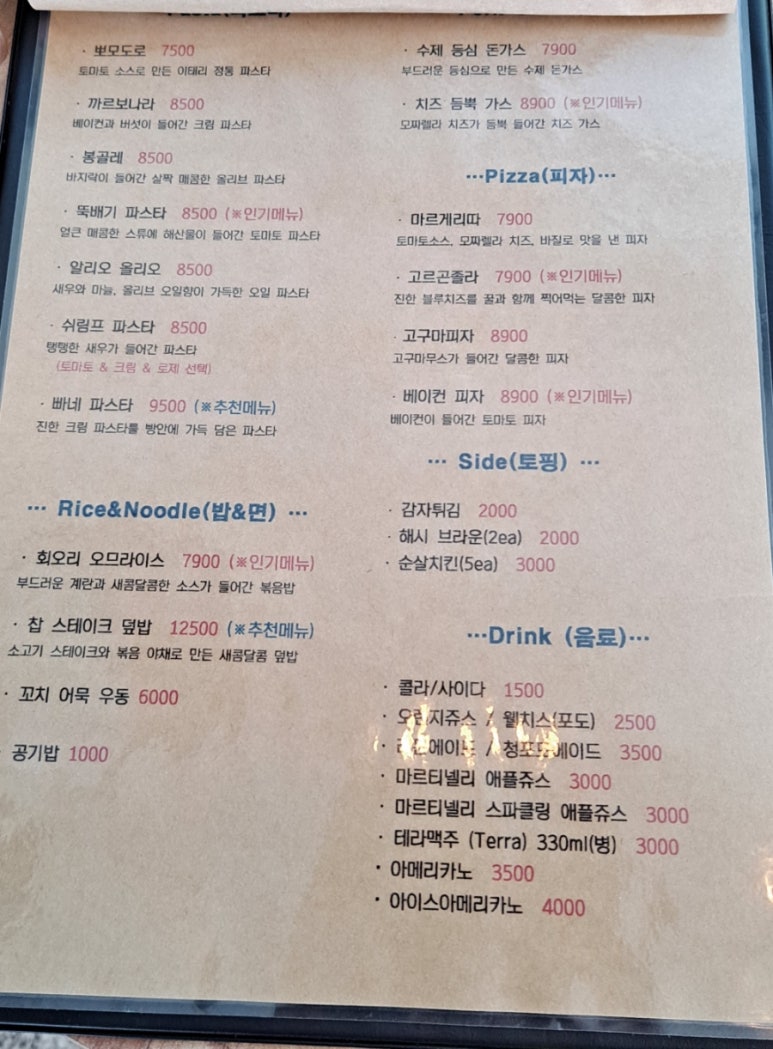 · 뽀모도로 7500
토마토 소스로 만든 이태리 정통 파스타
· 까르보나라 8500
베이컨과 버섯이 들어간 크림 파스타
· 봉골레 8500
바지락이 들어간 살짝 매콤한 올리브 파스타
· 뚝배기 파스타 8500 (※인기메뉴)
얼큰 매콤한 스튜에 해산물이 들어간 토마토 파스타
· 알리오 올리오 8500
새우와 마늘, 올리브 오일향이 가득한 오일 파스타
· 쉬림프 파스타 8500
탱탱한 새우가 들어간 파스타
(토마토 & 크림 & 로제 선택)
· 빠네 파스타 9500 (※추천메뉴)
진한 크림 파스타를 빵안에 가득 담은 파스타
··· Rice&Noodle(밥&면) ···
· 회오리 오므라이스 7900 (※인기메뉴)
부드러운 계란과 새콤달콤한 소스가 들어간 볶음밥
· 찹 스테이크 덮밥 12500 (※추천메뉴)
소고기 스테이크와 볶음 야채로 만든 새콤달콤 덮밥
· 꼬치 어묵 우동 6000
· 공기밥 1000
· 수제 등심 돈가스 7900
부드러운 등심으로 만든 수제 돈가스
· 치즈 듬뿍 가스 8900 (※인기메뉴)
모짜렐라 치즈가 듬뿍 들어간 치즈 가스
···Pizza(피자)···
· 마르게리따 7900
토마토소스, 모짜렐라 치즈, 바질로 맛을 낸 피자
· 고르곤졸라 7900 (※인기메뉴)
진한 블루치즈를 꿀과 함께 찍어먹는 달콤한 피자
· 고구마피자 8900
고구마무스가 들어간 달콤한 피자
· 베이컨 피자 8900 (※인기메뉴)
베이컨이 들어간 토마토 피자
··· Side(토핑) ···
· 감자튀김 2000
· 해시 브라운(2ea) 2000
· 순살치킨(5ea) 3000
···Drink (음료)···
· 콜라/사이다 1500
· 오렌지쥬스 / 웰치스(포도) 2500
· / 청포도에이드 3500
· 마르티넬리 애플쥬스 3000
· 마르티넬리 스파클링 애플쥬스 3000
· 테라맥주 (Terra) 330ml(병) 3000
· 아메리카노 3500
· 아이스아메리카노 4000